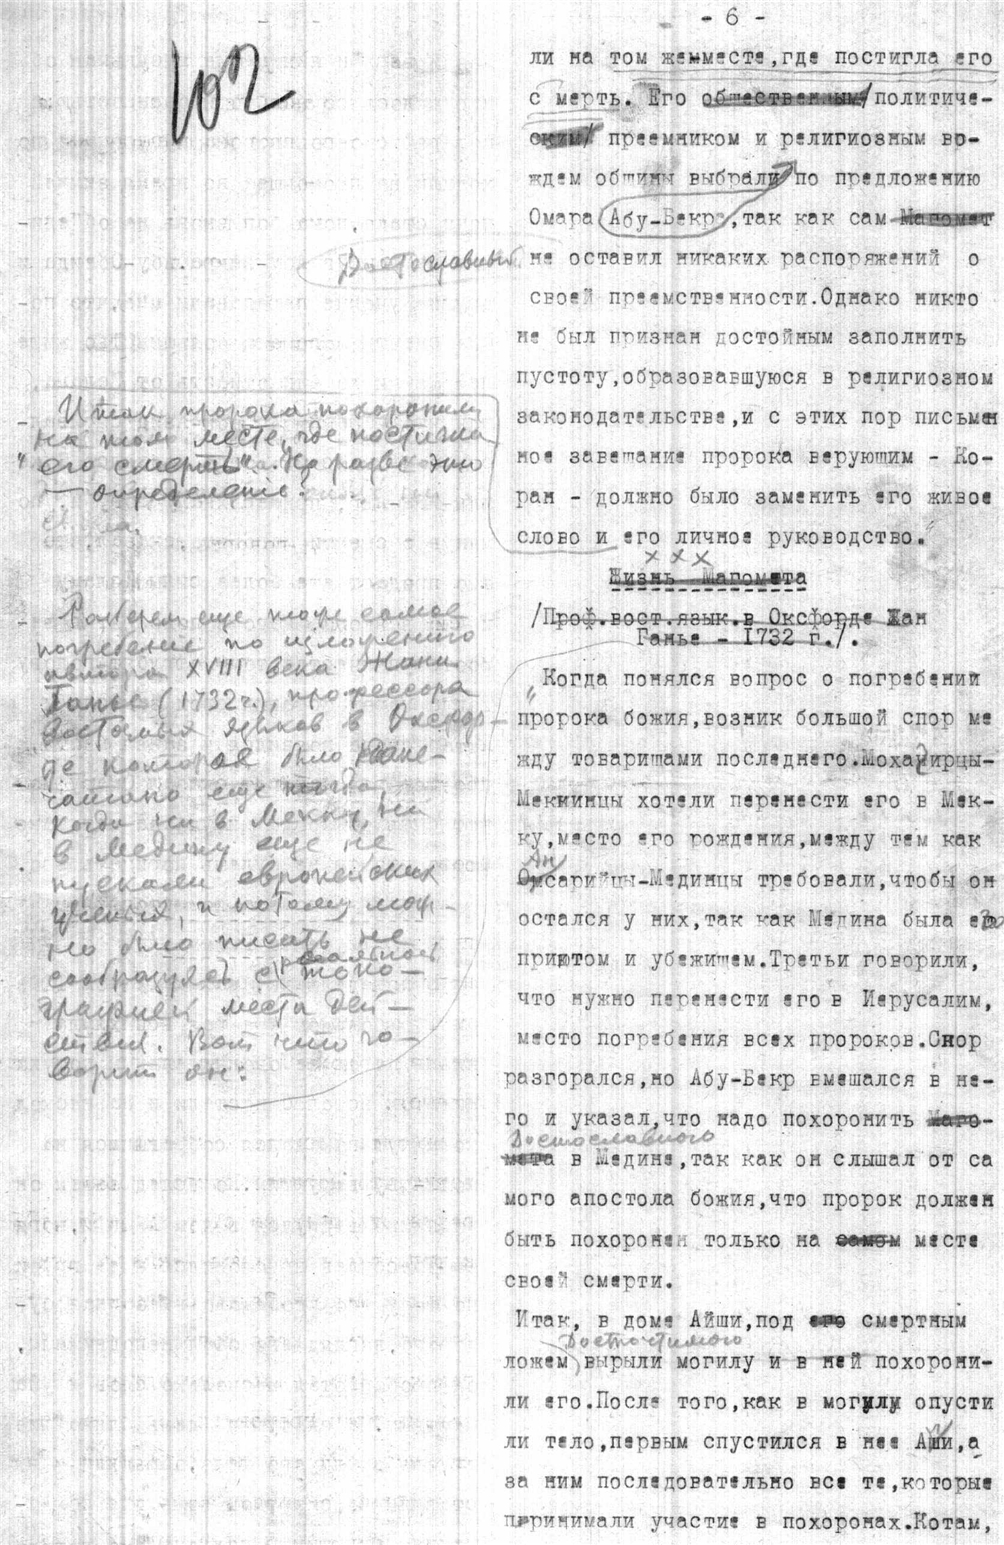 - 6 -
102
ли на том жемместе,где постигла его
с мерть. Его общественным/политиче-
ским/ преемником и религиозным во-
ждем общины выбрали по предложению
Омара Абу-Бекра,так как сам Магомет
Достославный
не оставил никаких распоряжений о
своей преемственности.Однако никто
не был признан достойным заполнить
пустоту,образовавшуюся в религиозном
законодательстве,и с этих пор письмен
ное завещание пророка верующим - Ко-
ран - должно было заменить его живое
слово и его личное руководство."
Итак, пророка похоронили
на том месте, где постигла
"его смерть". Но разве это
— определение.
х х х
Жизнь Магомета
/Проф.вост.язык.в Оксфорде Жан
Ганье - 1732 г./.
Разберем еще то же самое
погребение по изложению
автора XVIII века Жана
Ганье (1732г.), профессора
Восточных языков в Оксфор-
де которая была напе-
чатано еще тогда,
когда ни в Мекку, ни
в Медину еще не
пускали европейских
ученых, и потому мож-
но было писать не
сообразуясь с реальной топо-
графией места дей-
ствия. Вот что го-
ворит он:
"Когда понялся вопрос о погребений
пророка божия,возник большой спор ме
жду товарищами последнего.Мохаджирцы-
Меккинцы хотели перенести его в Мек-
ку,место его рождения,между тем как
Ансарийцы-Мединцы требовали,чтобы он
остался у них,так как Медина была его
приютом и убежищем.Третьи говорили,
что нужно перенести его в Иерусалим,
место погребения всех пророков.Спор
разгорался,но Абу-Бекр вмешался в не-
го и указал,что надо похоронить Маго-
Достославного
мета в Медине,так как он слышал от са
мого апостола божия,что пророк должен
быть похоронен только на самом месте
своей смерти.
Итак, в доме Айши,под его смертным
Досточтимого
ложем,вырыли могилу и в ней похорони-
ли его.После того,как в могулу опусти
ли тело,первым спустился в нее Али,а
за ним последовательно все те,которые
принимали участие в похоронах.Котам,